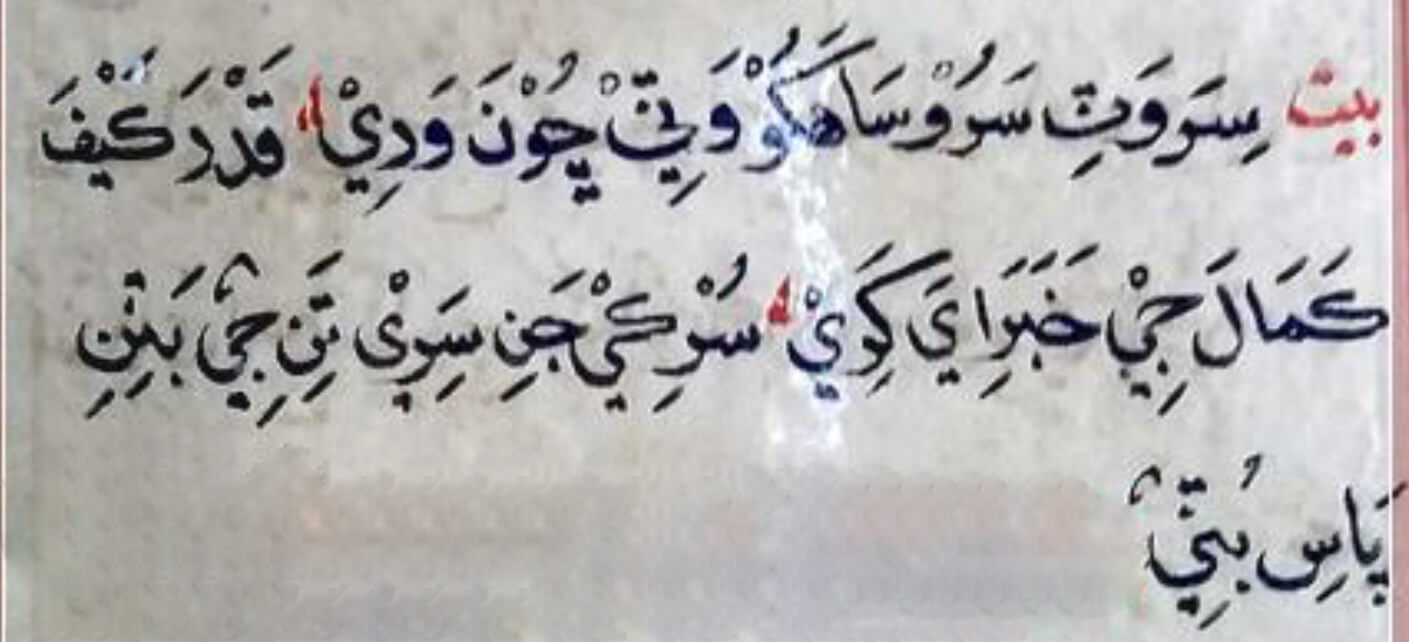 بيت سِرَ وَٽِ سَرُوْ سَاهَکُوْ وَٽِيْ چُوْنَ وَرِيْ ؞ قَدْرَ کَيْفَ
کَمَالَ جِيْ خَبَرَ اِيَ کَوِيْ ؞ سُرْکِيْ جَنِ سَرِيْ تَنِ جِيْ بَنِنِ
پَاسِ بُنِيْ